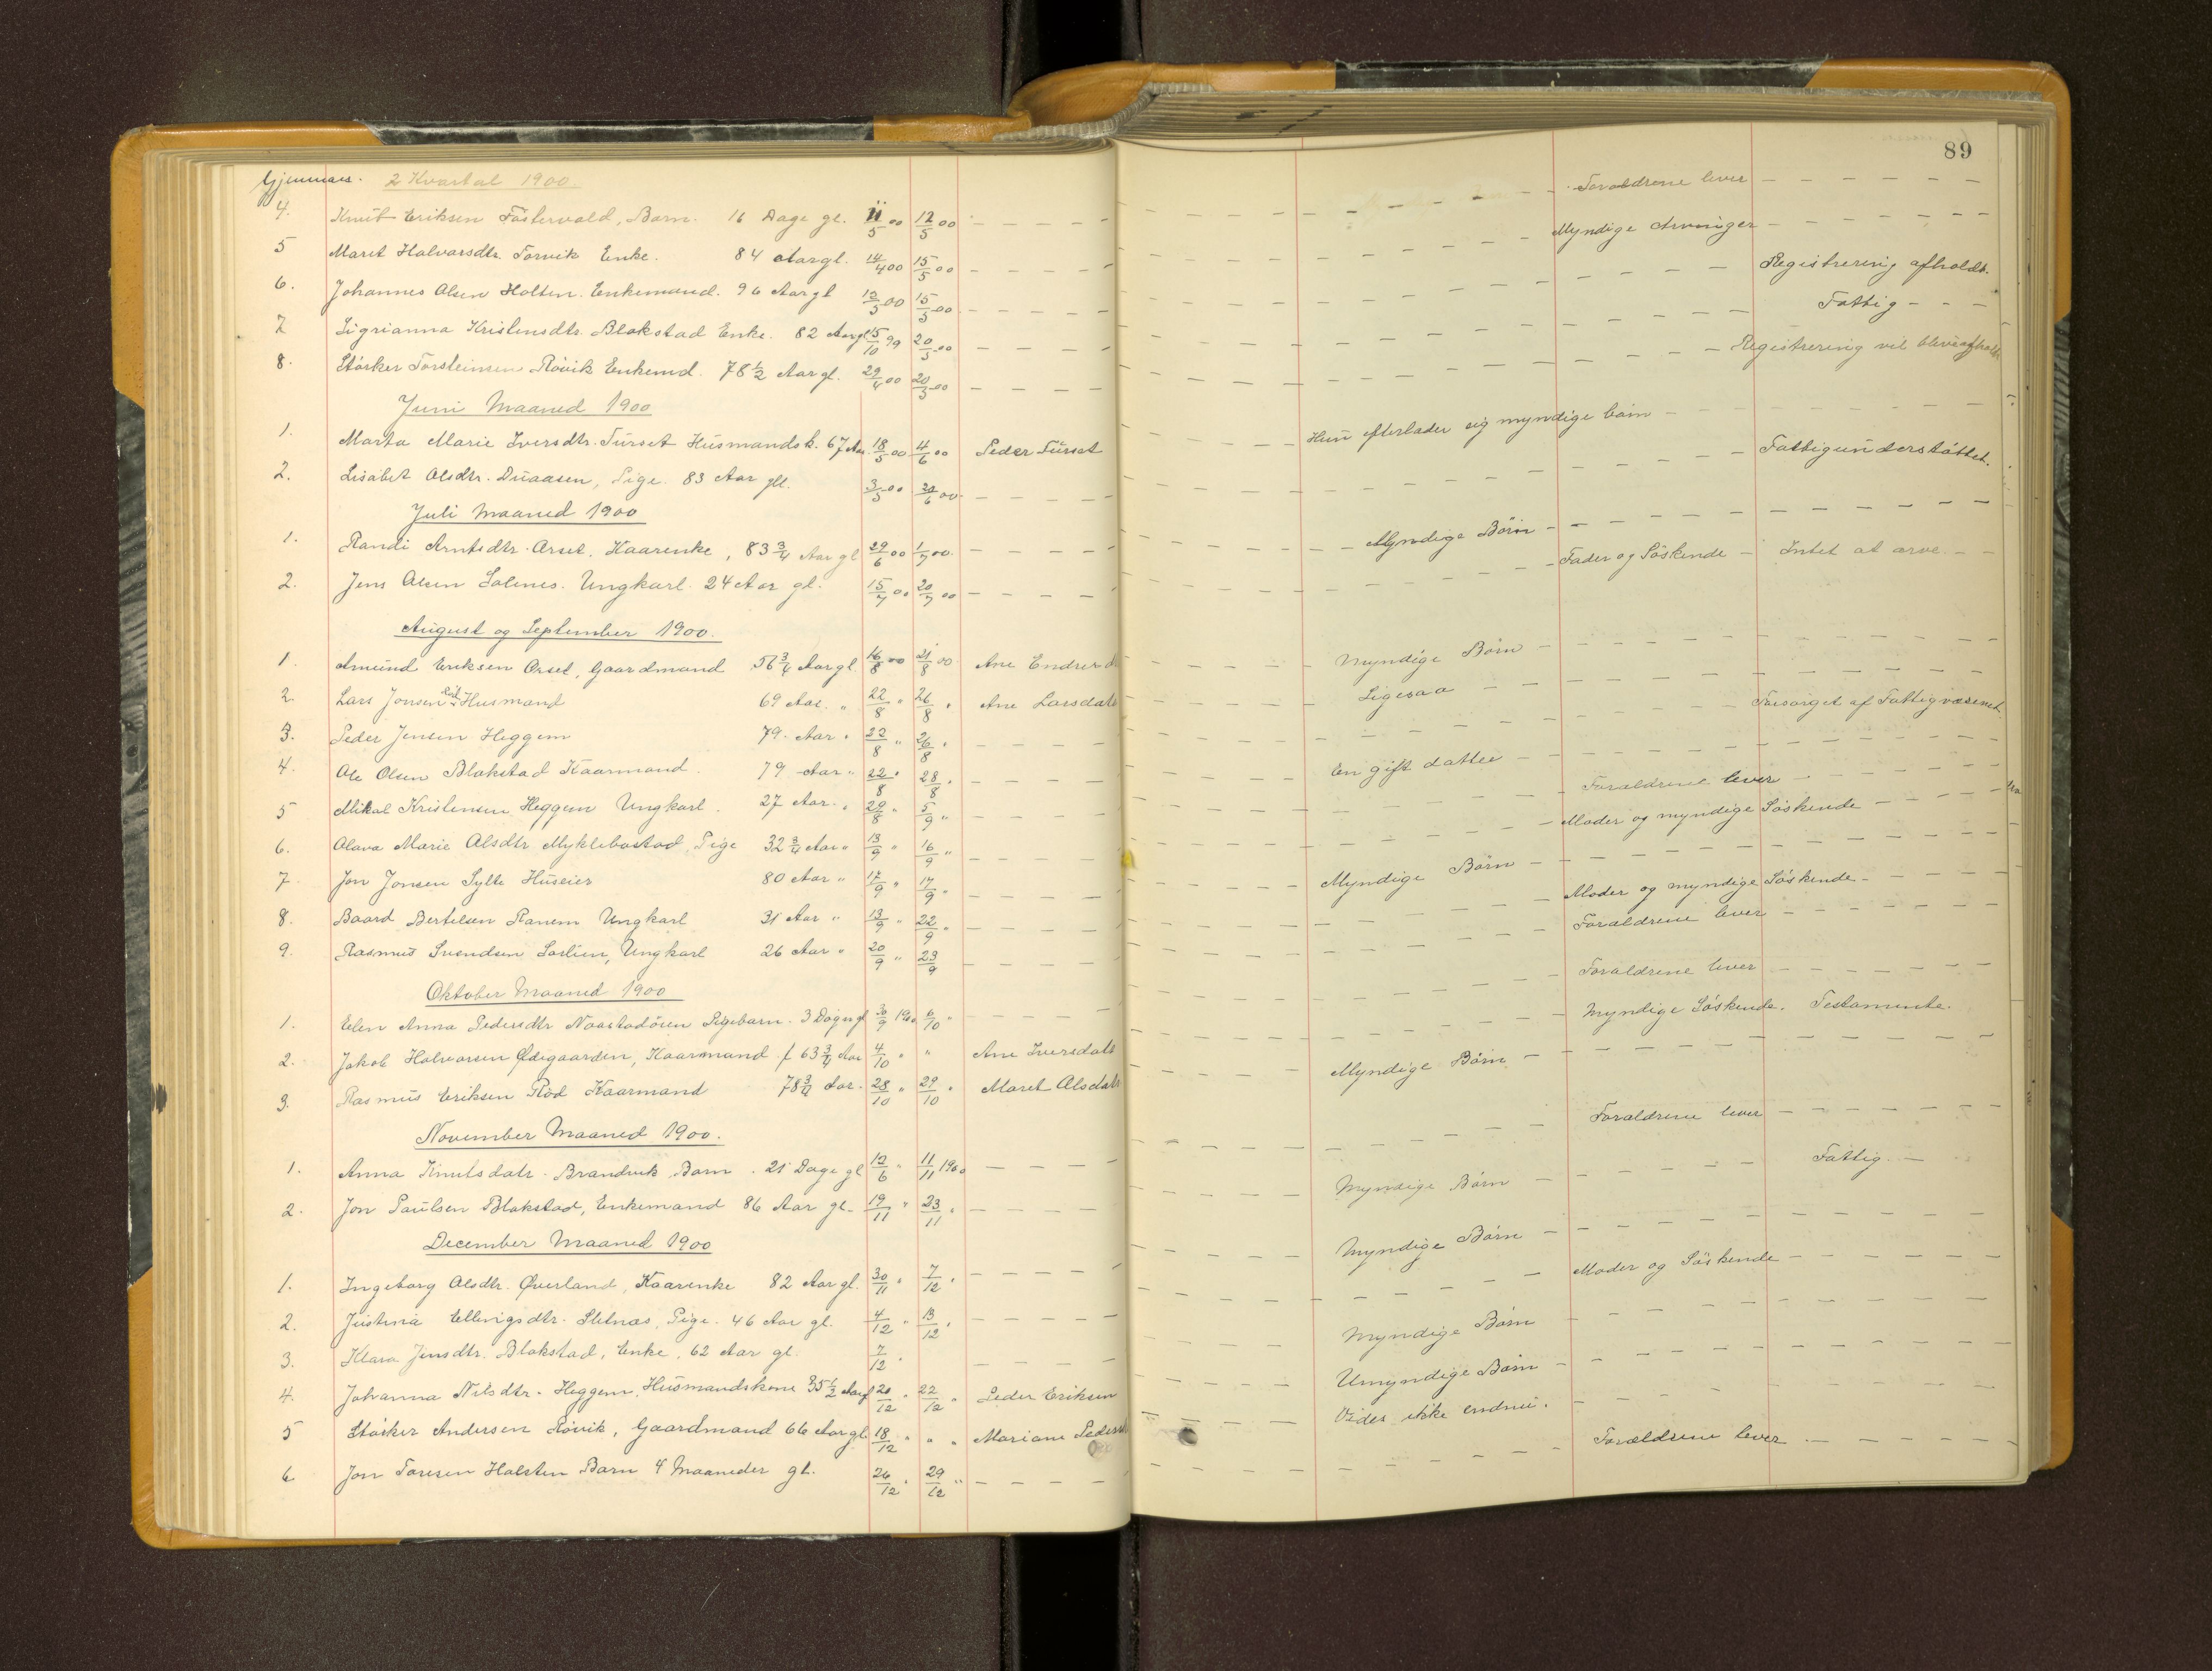 Gjemnæs. 2 Kvartal 1900.
4. Knut Eriksen Fostervold, Barn. 16 Dage gl. 11/5 00 12/5 00
5 Maret Halvorsdtr. Torvik Enke. 84 Aar gl. 14/4 00 15/5 00
6. Johannes Olsen Holten. Enkemand. 96 Aar gl 12/5 00 15/5 00
7 Sigrianna Kristensdtr. Blakstad Enke. 82 Aar gl 15/10 99 20/5 00
8. Störker Torsteinsen Rövik Enkemd. 78 1/2 Aar gl. 29/4 00 20/5 00
Juni Maaned 1900
1. Marta Marie Iversdtr. Turset Husmandsk. 67 Aar 18/5 00 4/6 00 Peder Turset
2. Lisabet Olsdtr. Duaasen, Pige. 83 Aar gl. 3/5 00 21/6 00
Juli Maaned 1900
1. Randi Arntsdtr. Orset, Kaarenke, 83 3/4 Aar gl 29/6 00 1/7 00.
2. Jens Olsen Solnes. Ungkarl. 24 Aar gl. 15/7 00 20/7 00
August og September 1900.
1. Amund Eriksen Orset, Gaardmand 56 3/4 Aar gl. 16/8 00 21/8 00 Ane Endresd
2. Lars Jonsen Husmand 69 Aar. " 22/8 " 26/8 " Ane Larsdatr
3. Peder Jensen Heggem 79. Aar " 22/8 " 26/8 "
4. Ole Olsen Blakstad Kaarmand. 79 Aar " 22/8 " 28/8 "
5 Mikal Kristensen Heggem Ungkarl. 27 Aar. " 29/8 " 5/9 "
6. Olava Marie Olsdtr Myklebostad, Pige 32 3/4 Aar " 13/9 " 16/9 "
7. Jon Jonsen Sylte Huseier 80 Aar " 17/9 " 17/9 "
8. Baard Bertelsen Ranem Ungkarl 31 Aar " 13/9 " 22/9 "
9. Rasmus Svendsen Sorlien, Ungkarl 26 Aar " 20/9 " 23/9
Oktober Maaned 1900
1. Elen Anna Pedersdtr Naastadören Pigebarn. 3 Dögn gl 30/9 1900 6/10 "
2. Jakob Halvorsen Ødegaarden, Kaarmand f 63 3/4 Aar 4/10 " " Ane Iversdatr
3. Rasmus Eriksen Röd Kaarmand 78 3/4 Aar. 28/10 " 29/10 " Maret Olsdatr
November Maaned 1900.
1. Anna Knutsdatr. Brandvik, Barn. 21 Dage gl 12/6 " 11/11 1900
2. Jon Paulsen Blakstad, Enkemand 86 Aar gl. 19/11 " 23/11 "
December Maaned 1900
1. Ingeborg Olsdtr. Øverland, Kaarenke 82 Aar gl. 30/11 " 7/12 "
2. Justina Ellingsdtr. Stenæs, Pige. 46 Aar gl. 4/12 " 13/12 "
3. Klara Jensdtr. Blakstad, Enke, 62 Aar gl. 7/12 "
4. Johanna Nilsdtr. Heggem, Husmandskone 35 1/2 Aar gl 20/12 " 22/12 " Peder Eriksen
5 Störker Andersen Rövik, Gaardmand 66 Aar gl 18/12 " " " Mariane Peders
6 Jon Toresen Halsten Barn 4 Maaneder gl. 26/12 " 29/12 "
89
Forældrene lever
Myndige Arvinger
Registrering afholdt.
Fattig
Registrering vil blive afholdt
Hun efterlader sig myndige börn
Fattigunderstöttet.
Myndige Börn
Fader og Söskende Intet at arve.
Myndige Börn
Ligesaa
Forsörget af Fattigvæsenet
En gift datter
Forældrene lever
Moder og myndige Söskende
Myndige Börn
Moder og myndige Söskende
Forældrene lever
Forældrene lever
Myndige Söskende. Testamente.
Myndige Börn
Forældrene lever
Fattig.
Myndige Börn
Myndige Börn
Moder og Söskende
Myndige Börn
Umyndige Börn
Vides ikke endnu.
Forældrene lever.